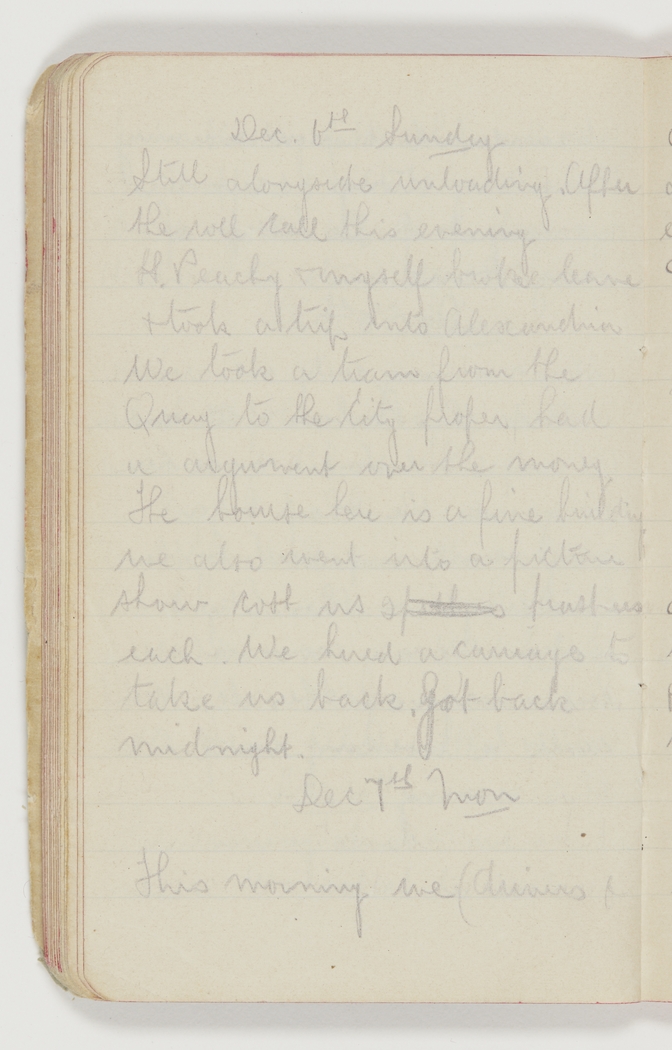 Dec. 6th Sunday
Still alongside unloading. After
the roll call this evening
H. Peachy & myself broke leave
& took a trip into Alexandria
We took a tram from the
Quay to the City proper had
a argument over the money
The bourse here is a fine building
we also went into a picture
show cost us 2 piastres
each. We hired a carriage to
take us back. Got back
midnight.
Dec 7th Mon
This morning we (drivers &